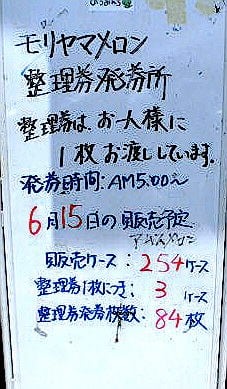 モリヤマメロン
整理券発券所
整理券は、お人様に
1枚お渡ししています。
発券時間:AM5:00〜
6月15日の販売予定
販売ケース:254ケース
整理券1枚につき:3ケース
整理券発券枚数:84枚